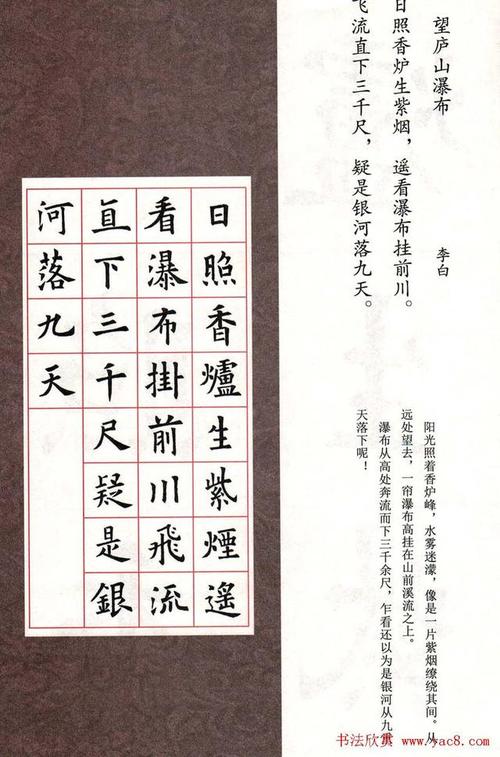 望庐山瀑布
李白
日照香炉生紫烟，遥看瀑布挂前川。
飞流直下三千尺，疑是银河落九天。
阳光照着香炉峰，水雾迷濛，像是一片紫烟缭绕其间。从
远处望去，一帘瀑布高挂在山前溪流之上。
瀑布从高处奔流而下三千余尺，乍看还以为是银河从九重
天落下呢！
日照香爐生紫煙遥
看瀑布掛前川飛流
直下三千尺疑是銀
河落九天
书法欣赏 www.yac8.com